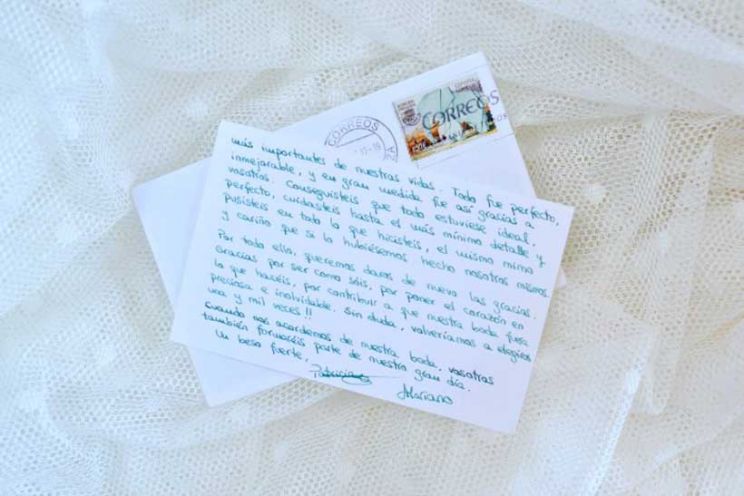 CORREOS
CORREOS
más importantes de nuestras vidas. Todo fue perfecto,
inmejorable, y en gran medida fue así gracias a
vosotras. Conseguisteis que todo estuviese ideal,
perfecto, cuidasteis hasta el más mínimo detalle y
pusisteis en todo lo que hicisteis, el mismo mimo
y cariño que si lo hubiésemos hecho nosotros mismos.
Por todo ello, queremos daros de nuevo las gracias.
Gracias por ser como sois, por poner el corazón en
lo que hacéis, por contribuir a que nuestra boda fuera
preciosa e inolvidable. Sin duda, volveríamos a elegiros
una y mil veces!!
Cuando nos acordemos de nuestra boda, vosotras
también formaréis parte de nuestro gran día.
Un beso fuerte,
Patricia
Mariano